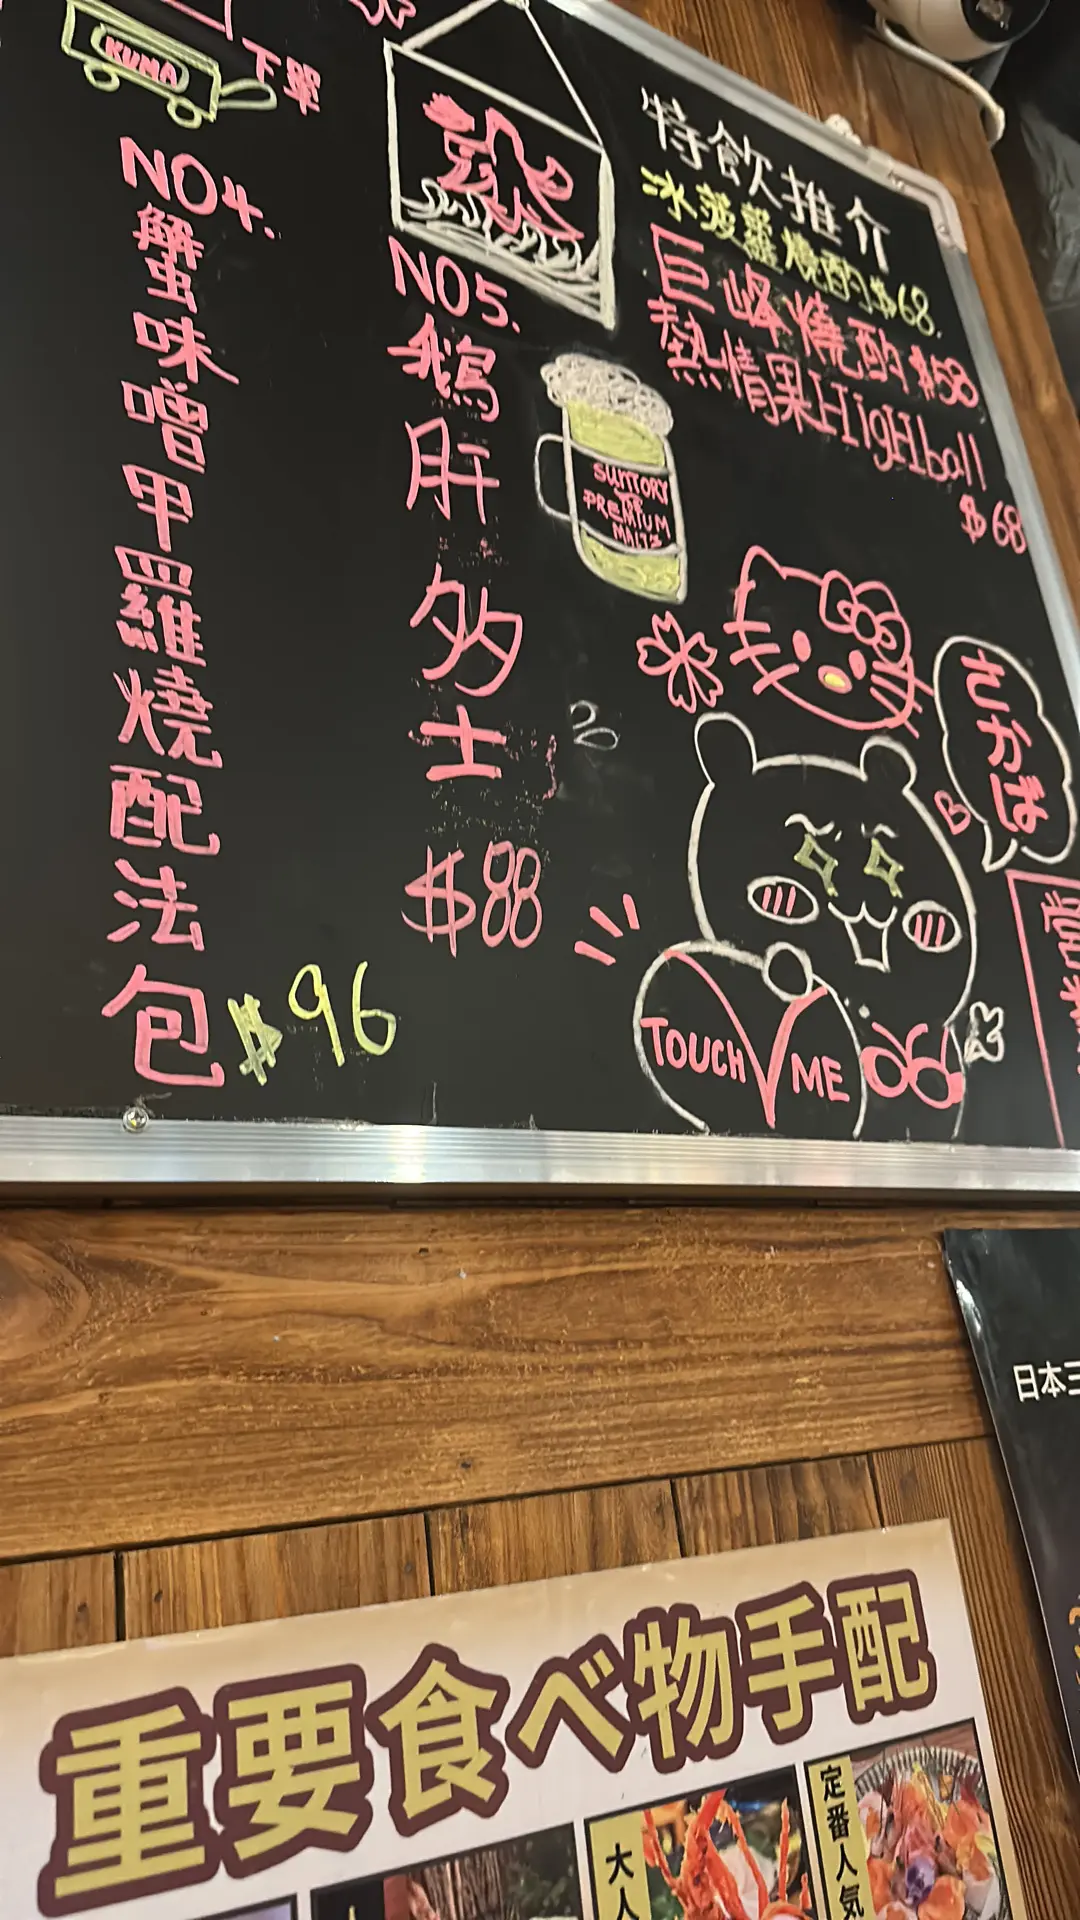 KUMA
下單
NO4.
蟹味噌甲羅燒配法包
$96
NO5.
鵝肝多士
$88
特飲推介
冰菠蘿燒酌$68.
巨峰燒酌$58
熱情果HigHball
$68
SUNTORY
THE
PREMIUM
MALT'S
さかば
TOUCH ME
日本三
重要食べ物手配
大人
定番人気